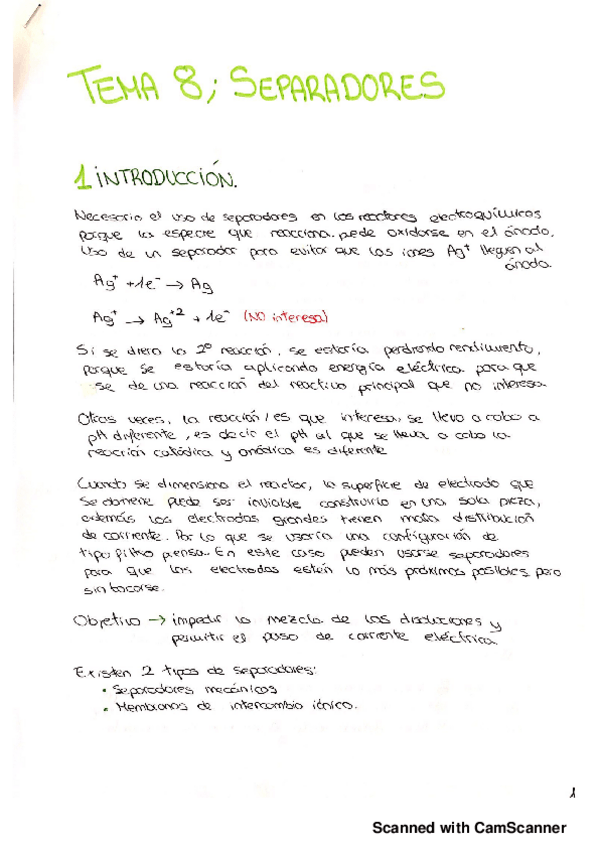 TEMA 8; SEPARADORES
1 INTRODUCCIÓN.
Necesario el uso de separadores en los reactores electroquímicos
porque la especie que reacciona pede oxidarse en el ánodo.
Uso de un separador para evitar que los iones Ag⁺ lleguen al
ánodo.
Ag⁺ + 1e⁻ → Ag
Ag⁺ → Ag⁺² + 1e⁻ (NO interesa)
Si se diera la 2º reacción, se estaría perdiendo rendimiento,
porque se estaría aplicando energía eléctrica para que
se de una reacción del reactivo principal que no interesa.
Otras veces, la reacción/es que interesa, se lleva a cabo a
pH diferente, es decir el pH al que se lleva a cabo la
reacción catódica y anódica es diferente
Cuando se dimensiona el reactor, la superficie de electrodo que
se obtiene puede ser inviable construirlo en una sola pieza,
además los electrodos grandes tienen mala distribución
de corriente. Por lo que se usaría una configuración de
tipo filtro prensa. En este caso pueden usarse separadores
para que los electrodos estén lo más próximos posibles pero
sin tocarse.
Objetivo → impedir la mezcla de las disoluciones y
permitir el paso de corriente eléctrica.
Existen 2 tipos de separadores:
• Separadores mecánicos
• Membranas de intercambio iónico.
1
Scanned with CamScanner